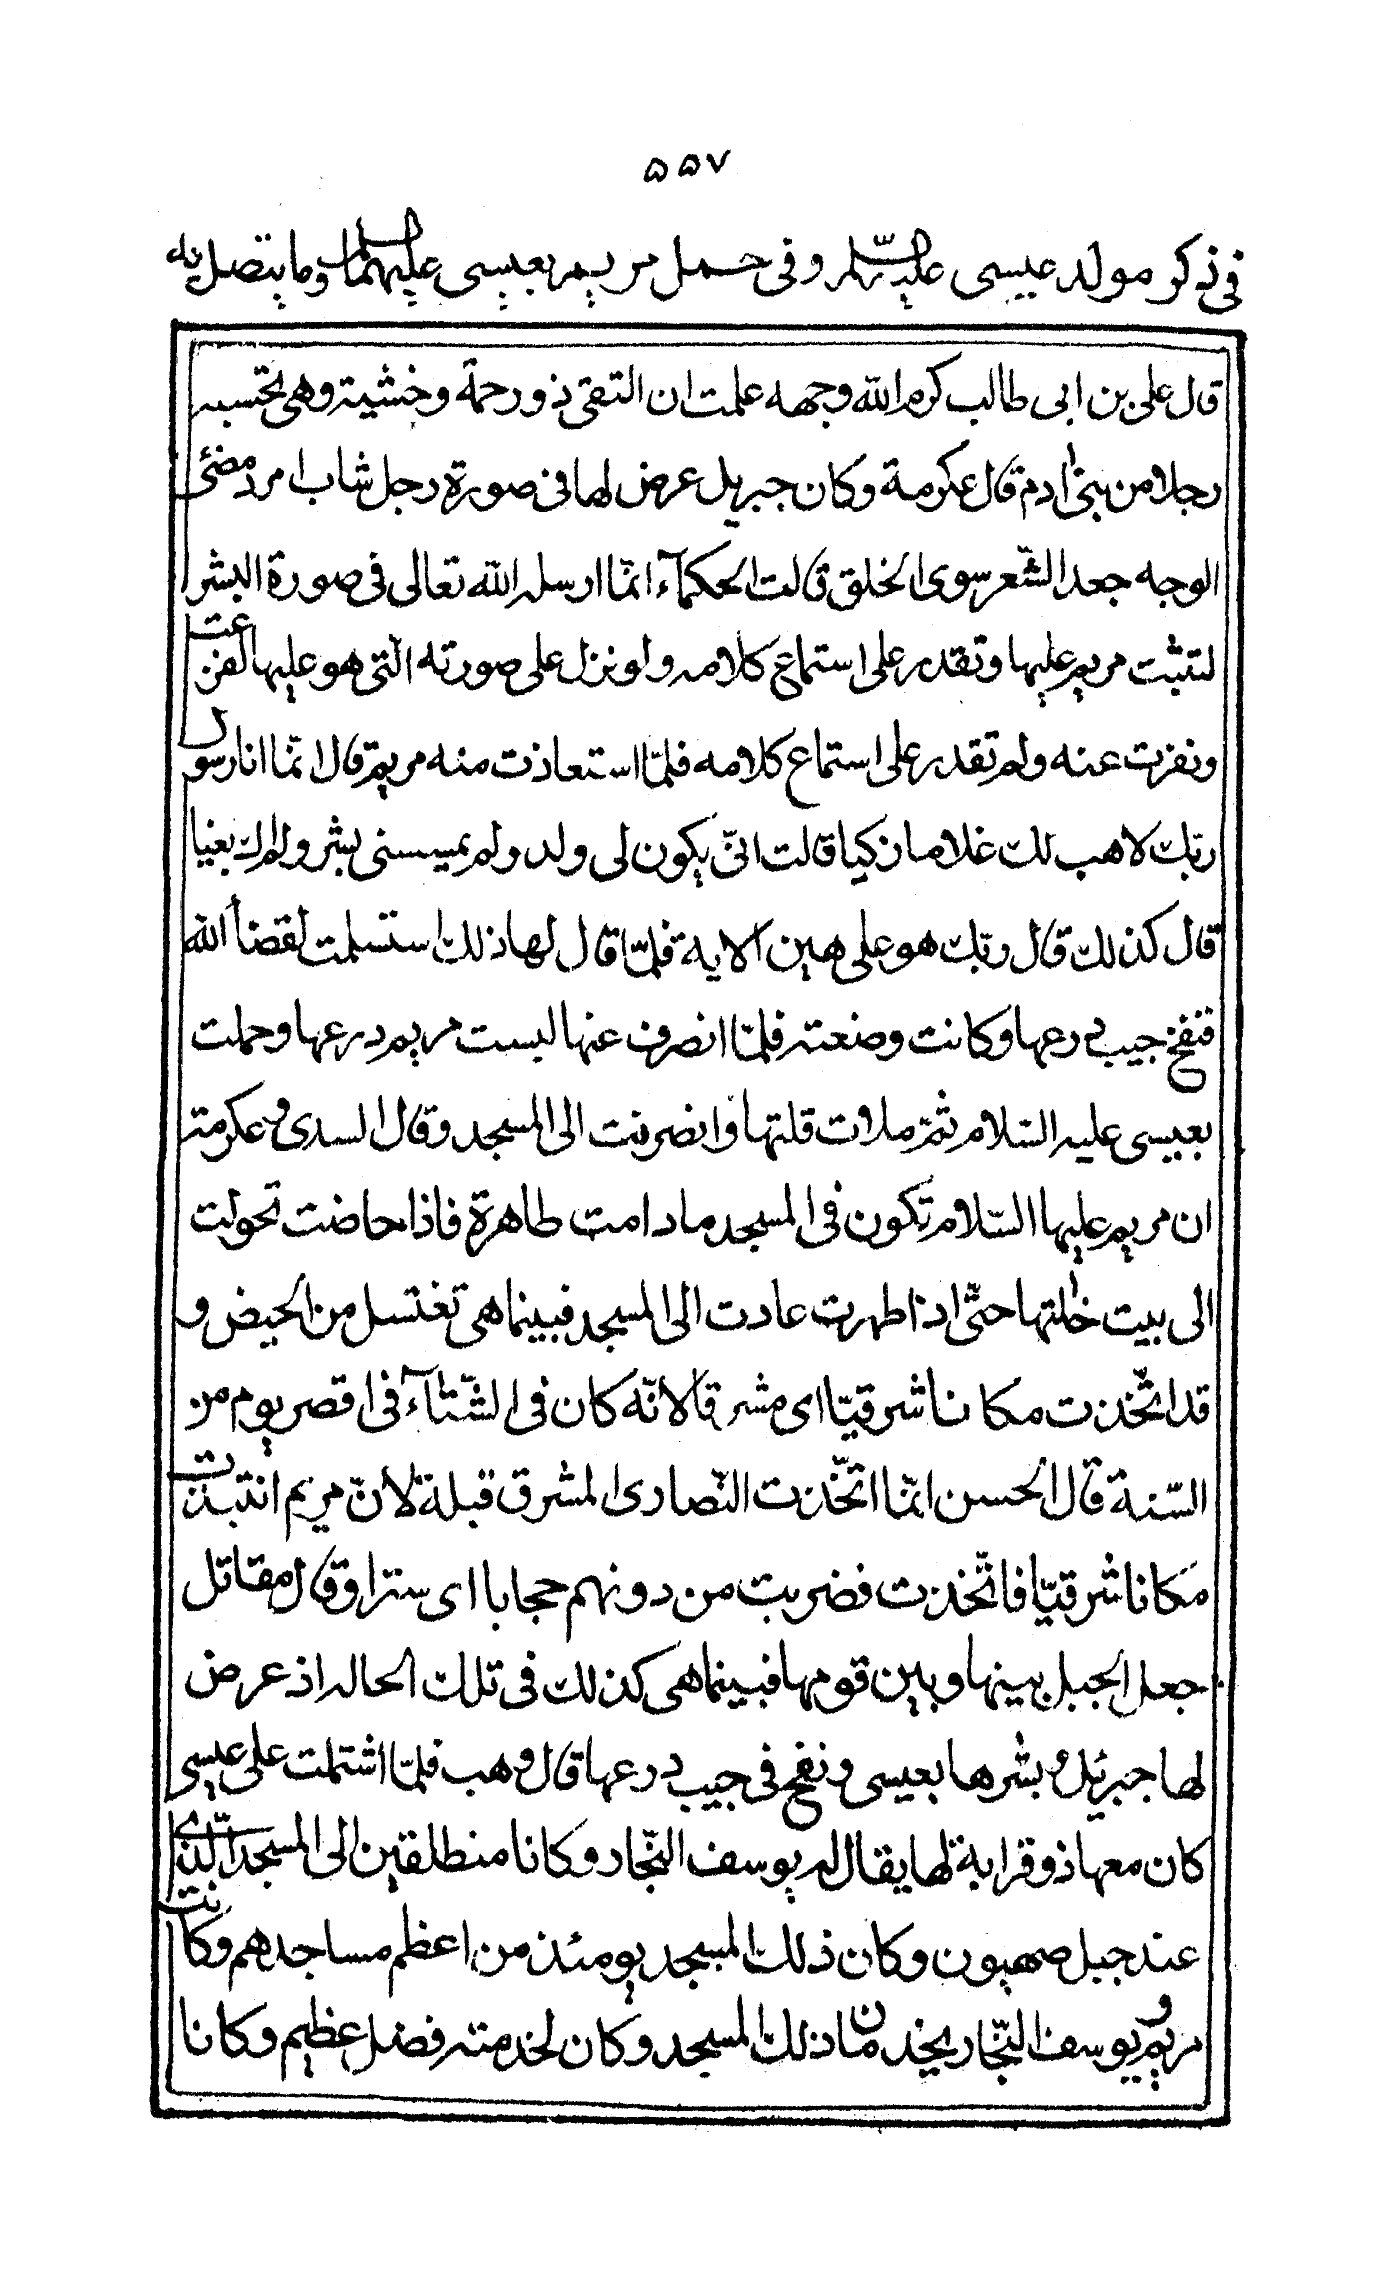 ۵۵۷
فى ذكر مولد عيسى عليه السّلام وفى حمل مريم بعيسى عليهما السلام وما يتصل به
قال على بن ابى طالب كرم الله وجهه علمت ان التقى ذو رحمة وخشية وهى تحسبه
رجلا من بنى ادم قال عكرمة وكان جبريل عرض لها فى صورة رجل شاب امرد مضئ
الوجه جعد الشّعر سوى الخلق قالت الحكمآء انّما ارسله الله تعالى فى صورة البشر
لتثبت مريم عليها وتقدر على استماع كلامه ولو نزل على صورته الّتى هو عليها لفزعت
ونفرت عنه ولم تقدر على استماع كلامه فلمّا استعاذت منه مريم قال انّما انا رسول
ربّك لاهب لك غلاما زكيا قالت انّى يكون لى ولد ولم يمسسنى بشر ولم اك بغيا
قال كذلك قال ربّك هو على هين الاية فلمّا قال لها ذلك استسلمت لقضأ الله
فنفخ جيب درعها وكانت وضعته فلمّا انصرف عنها لبست مريم درعها وحملت
بعيسى عليه السّلام ثمّ ملات قلتها وانصرفت الى المسجد وقال السدى وعكرمة
ان مريم عليها السّلام تكون فى المسجد ما دامت طاهرة فاذا حاضت تحولت
الى بيت خالتها حتّى اذا طهرت عادت الى المسجد فبينما هى تغتسل من الحيض و
قد اتّخذت مكانا شرقيّا اى مشرقا لانّه كان فى الشّتآء فى اقصر يوم من
السّنة قال الحسن انّما اتّخذت النّصارى المشرق قبلة لانّ مريم انتبذت
مكانا شرقيّا فاتّخذت فضربت من دونهم حجابا اى سترا وقال مقاتل
جعل الجبل بينها وبين قومها فبينما هى كذلك فى تلك الحاله اذ عرض
لها جبرئيل وبشّرها بعيسى ونفخ فى جيب درعها قال وهب فلمّا اشتملت على عيسى
كان معها ذو قرابة لها يقال له يوسف النّجار وكانا منطلقين الى المسجد الّذى
عند جبل صهيون وكان ذلك المسجد يومئذ من اعظم مساجدهم وكانت
مريم و يوسف النّجار يخدمان ذلك المسجد وكان لخدمته فضل عظيم وكانا